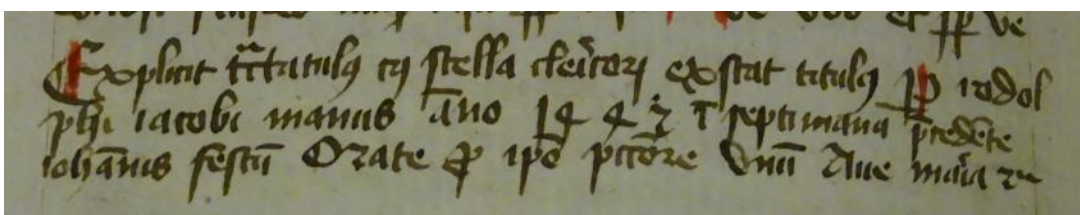 Explicit tractatulus cuius stella clericorum exstat titulus Per rodol
phi iacobi manus anno 1442 in septimana precedente
iohannis festum Orate pro ipso peccatore Unum Aue maria etc